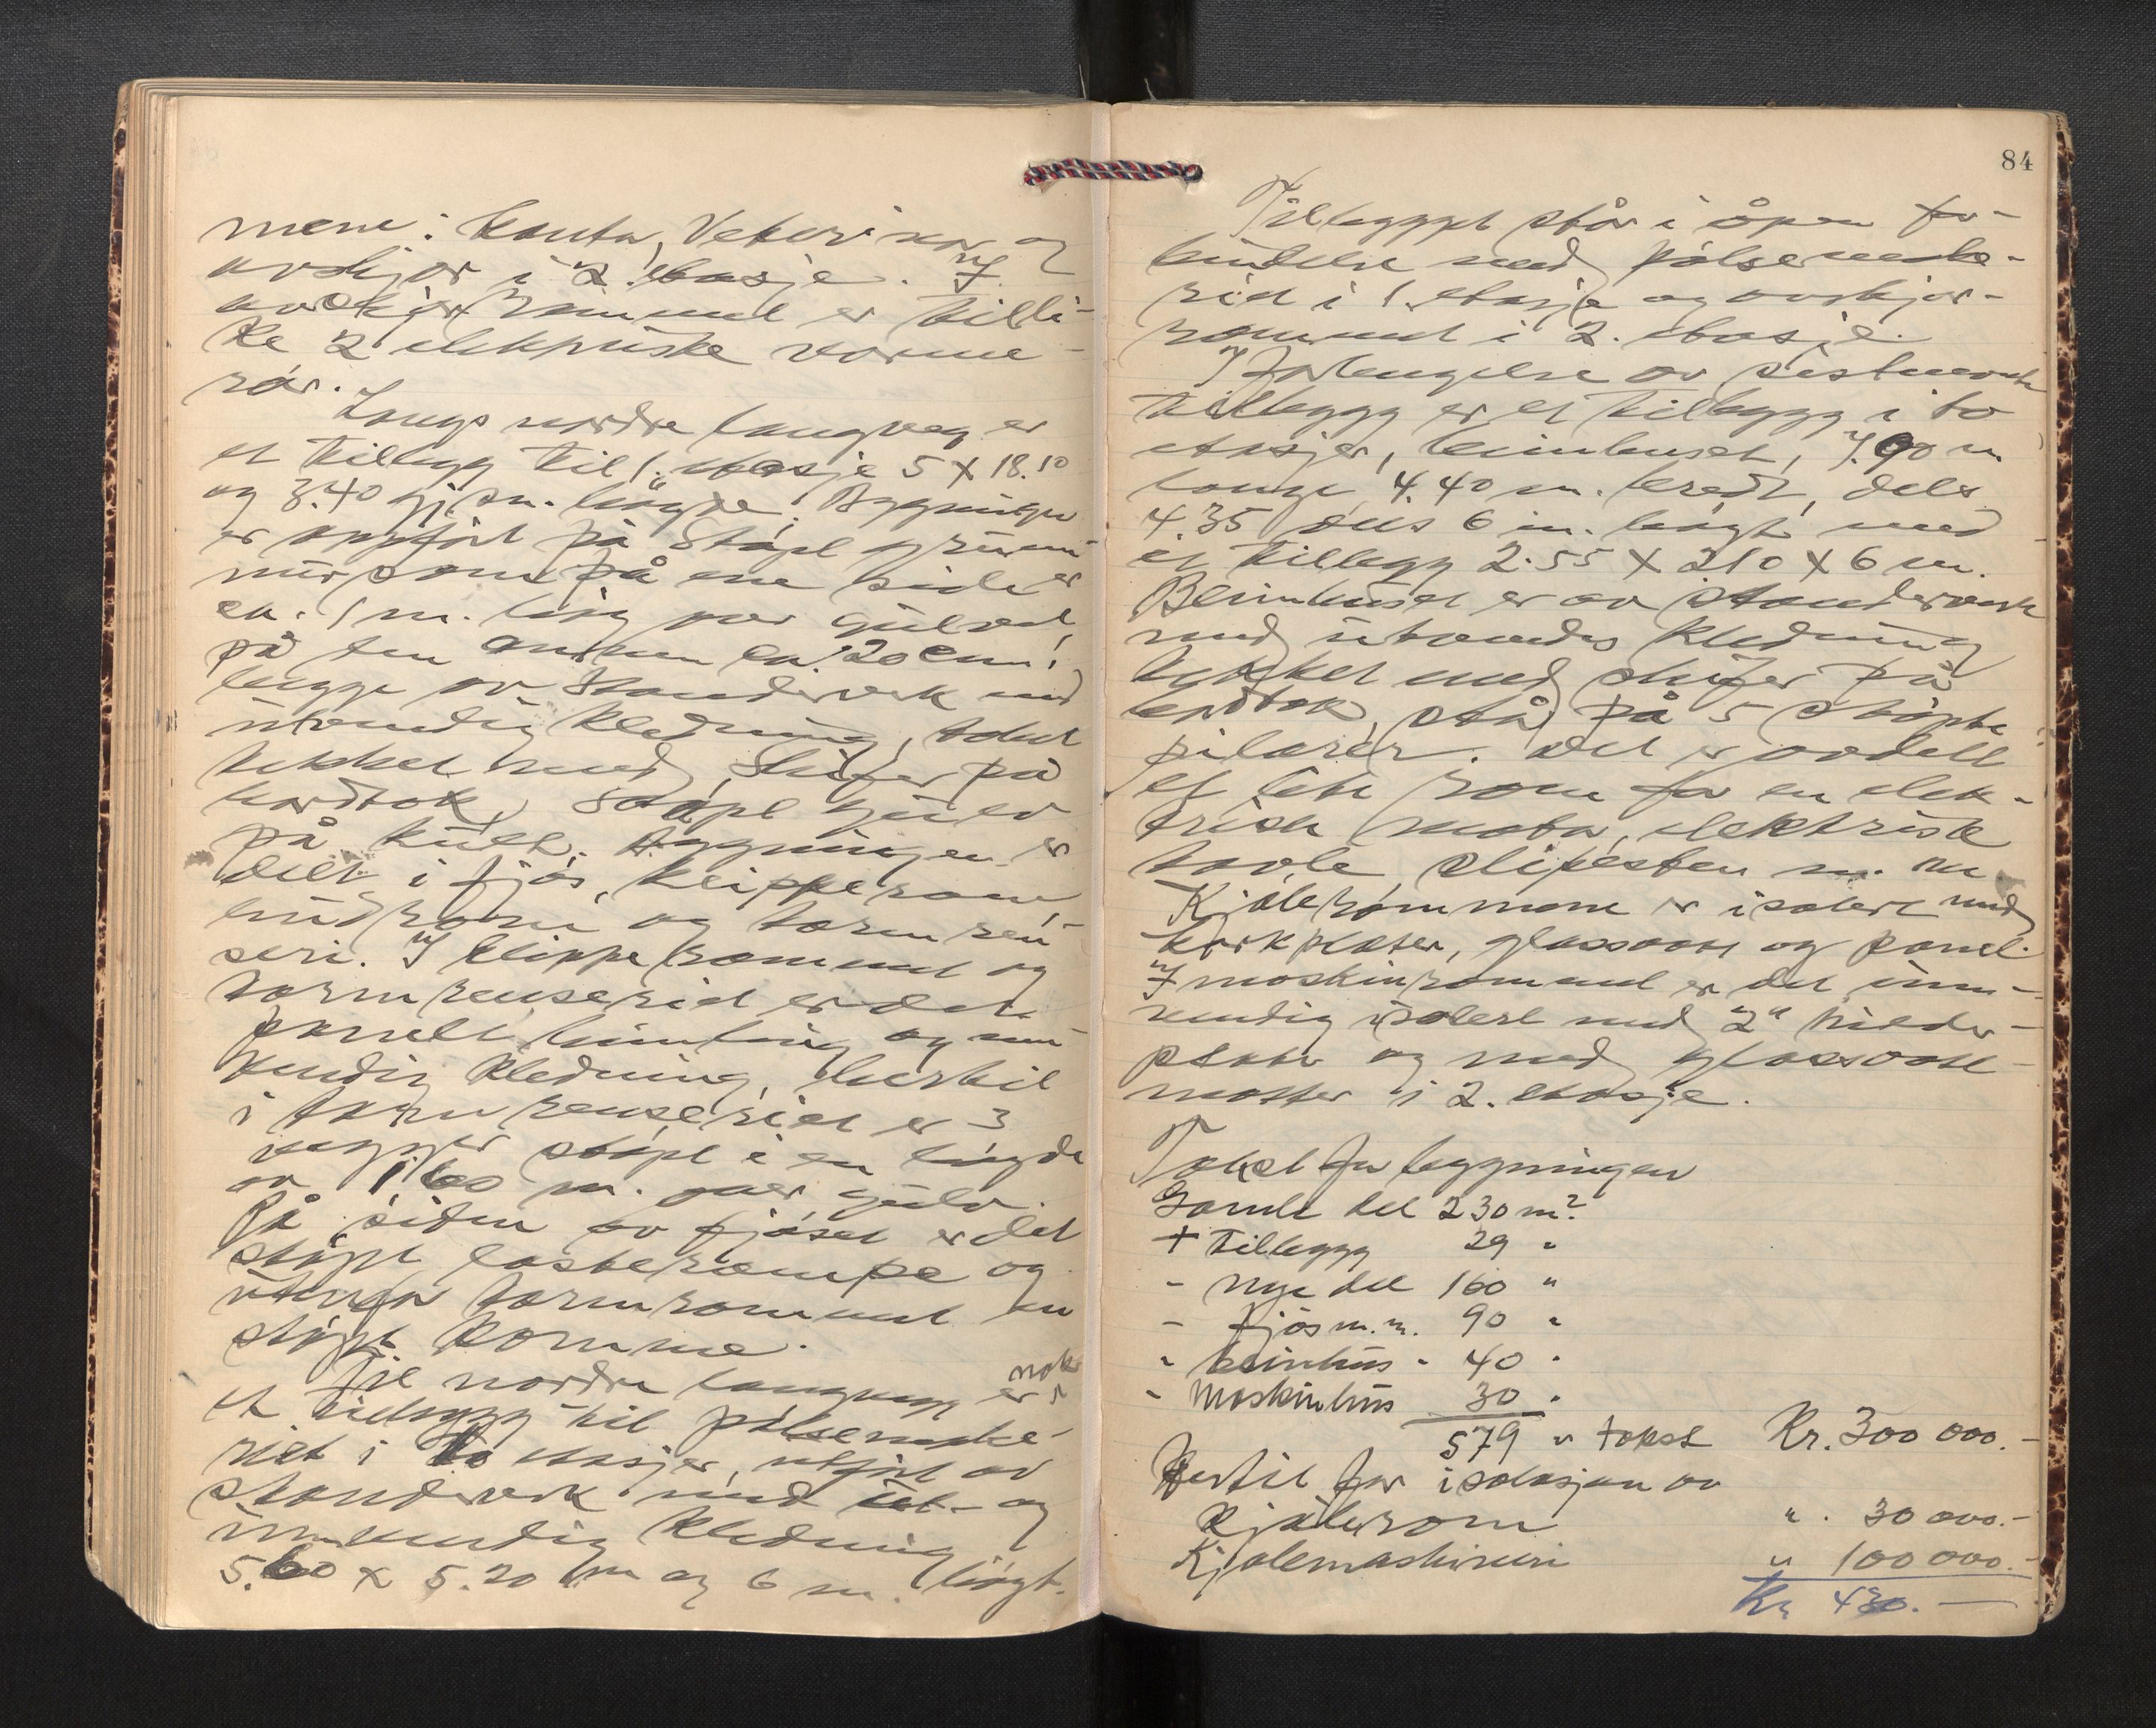 mene: Kontor, Veterinær og
avskjær i 2. etasje. I
avskjærrommet er tilli-
ke 2 elektriske varme-
rør.
Langs nordre langveg er
et tillegg til 1. etasje 5 X 18.10
og 3.40 gj.sn. høgde. Bygningen
er oppført på støpt grunn-
mur som på ene side er
ca. 1 m. høg over gulvet,
på den annen ca. 20 cm;
bygge av standerverk med
utvendig kledning, taket
tekket med skifer på
bordtak, støpt gulv
på kult. Bygningen er
delt i fjøs, klipperom,
hudrom og tarmren-
seri. I klipperommet og
tarmrenseriet er det
panelt himling og inn-
vendig kledning, hertil
i tarmrenseriet er 3
vegger støpt i en høgde
av 1.60 m. over gulv.
På siden av fjøset er det
støpt lasterampe og
utenfor tarmrommet en
støpt komme.
Til nordre langvegg er nok
et tillegg til pølsemake-
riet i to etasjer, utført av
standerverk med ut- og
innvendig kledning
5.60 x 5.20 m og 6 m. høgt.
84
Tillegget står i åpen for-
bindelse med pølsemake-
riet i 1. etasje og avskjær-
rommet i 2. etasje.
I forlengelse av sistnevnte
tillegg er et tillegg i to
etasjer, beinhuset, 7.90 m
lange, 4.40 m. bredt, dels
4.35 dels 6 m. høgt med
et tillegg 2.55 X 210 X 6 m.
Beinhuset er av standerverk
med utvendes kledning
tekket med skifer på
bordtak, står på 5 støpte
pilarer. Det er avdelt
et lite rom for en elek-
trisk motor, elektrisk
tavle slipesten m. m.
Kjølerommene er isolert med
korkplater, glassvatt og panel.
I maskinrommet er det inn-
vendig isolert med 2" 
plater og med glassvatt-
matter i 2. etasje.
Takst for bygningen
Gamle del 230 m2.
+ tillegg 29 "
- nye del 160 "
- fjøs m.m. 90 "
" beinhus " 40 "
- Maskinhus 30 "
579 " takst Kr. 300 000.-
Hertil for isolasjon av
Kjølerom " . 30 000.-
Kjølemaskineri " 100 000.-
Kr 430. —